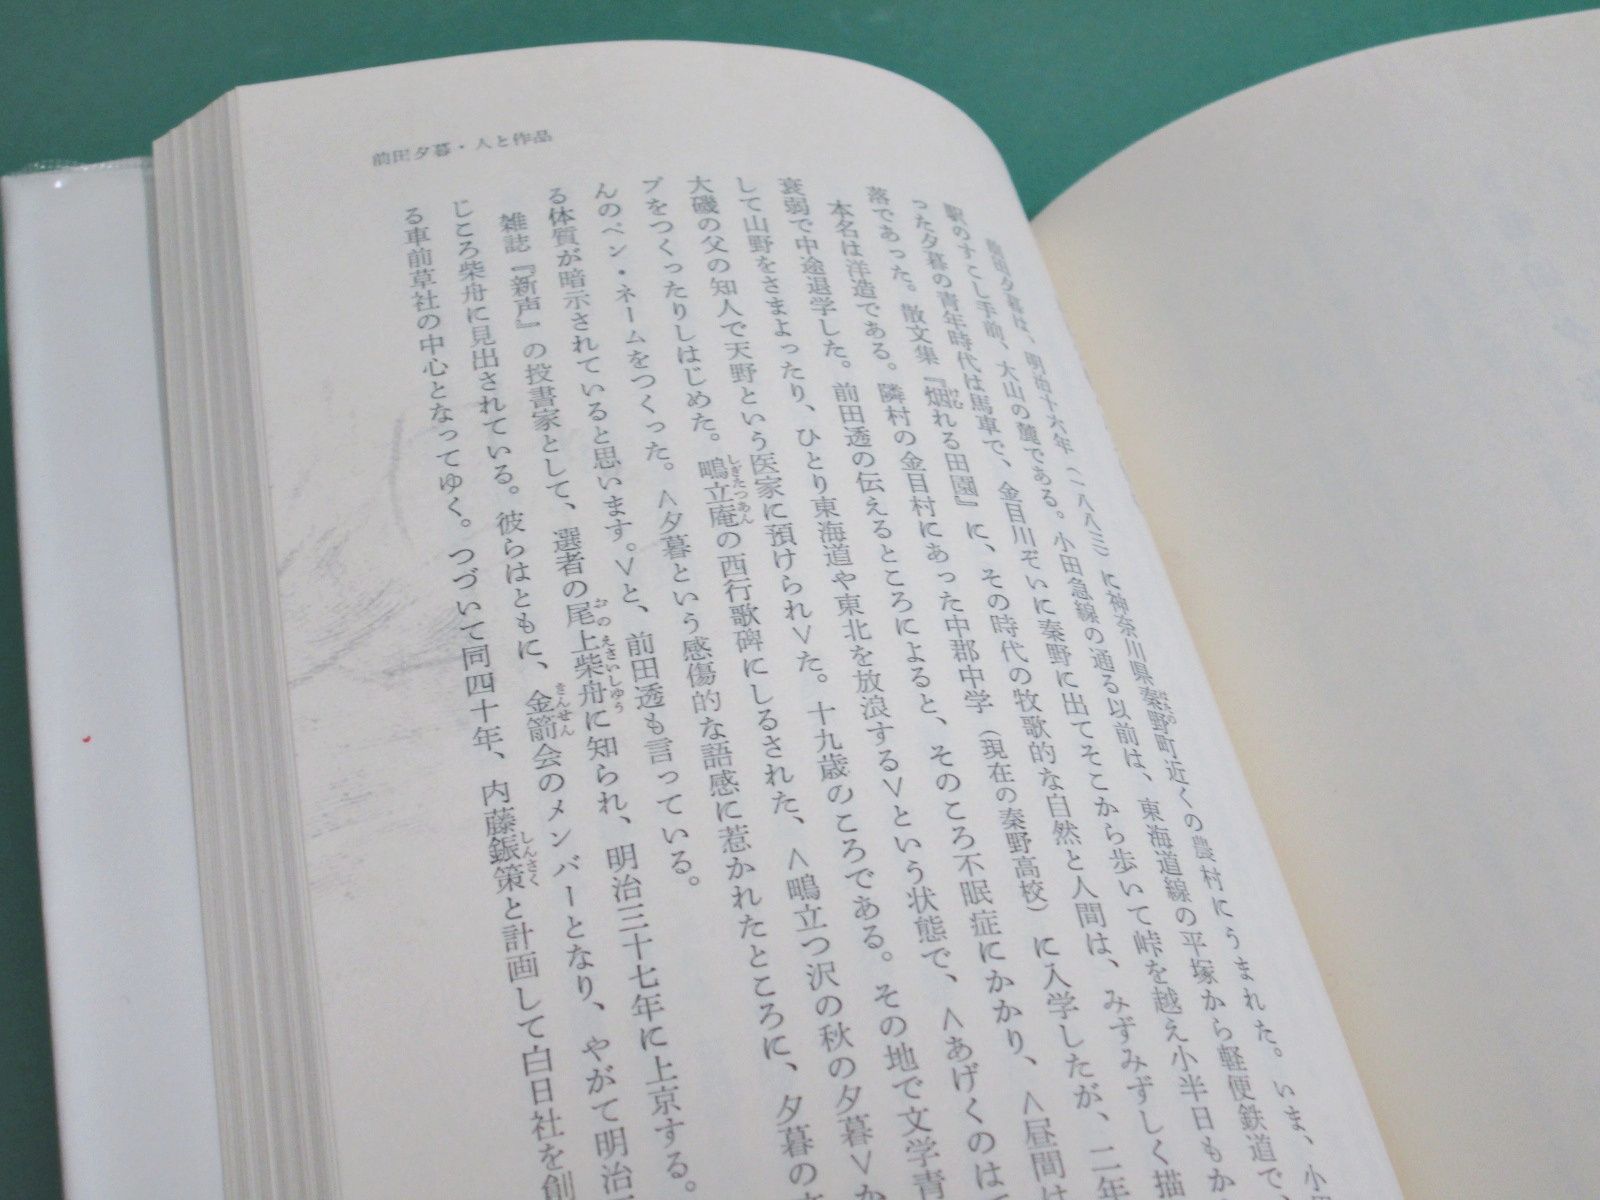 前田夕暮・人と作品
前田夕暮は、明治十六年（一八八三）に神奈川県秦野町近くの農村にうまれた。いま、小
駅のすこし手前、大山の麓である。小田急線の通る以前は、東海道線の平塚から軽便鉄道で、
った夕暮の青年時代は馬車で、金目川ぞいに秦野に出てそこから歩いて峠を越え小半日もか
落であった。散文集『烟れる田園』に、その時代の牧歌的な自然と人間は、みずみずしく描
本名は洋造である。隣村の金目村にあった中郡中学（現在の秦野高校）に入学したが、二年
衰弱で中途退学した。前田透の伝えるところによると、そのころ不眠症にかかり、＜昼間は
して山野をさまよったり、ひとり東海道や東北を放浪する＞という状態で、＜あげくのはて
大磯の父の知人で天野という医家に預けられ＞た。十九歳のころである。その地で文学青
プをつくったりしはじめた。鴫立庵の西行歌碑にしるされた、＜鴫立つ沢の秋の夕暮＞か
んのペン・ネームをつくった。＜夕暮という感傷的な語感に惹かれたところに、夕暮の
る体質が暗示されていると思います。＞と、前田透も言っている。
雑誌『新声』の投書家として、選者の尾上柴舟に知られ、明治三十七年に上京する。
じころ柴舟に見出されている。彼らはともに、金箭会のメンバーとなり、やがて明治
る車前草社の中心となってゆく。つづいて同四十年、内藤鋠策と計画して白日社を創